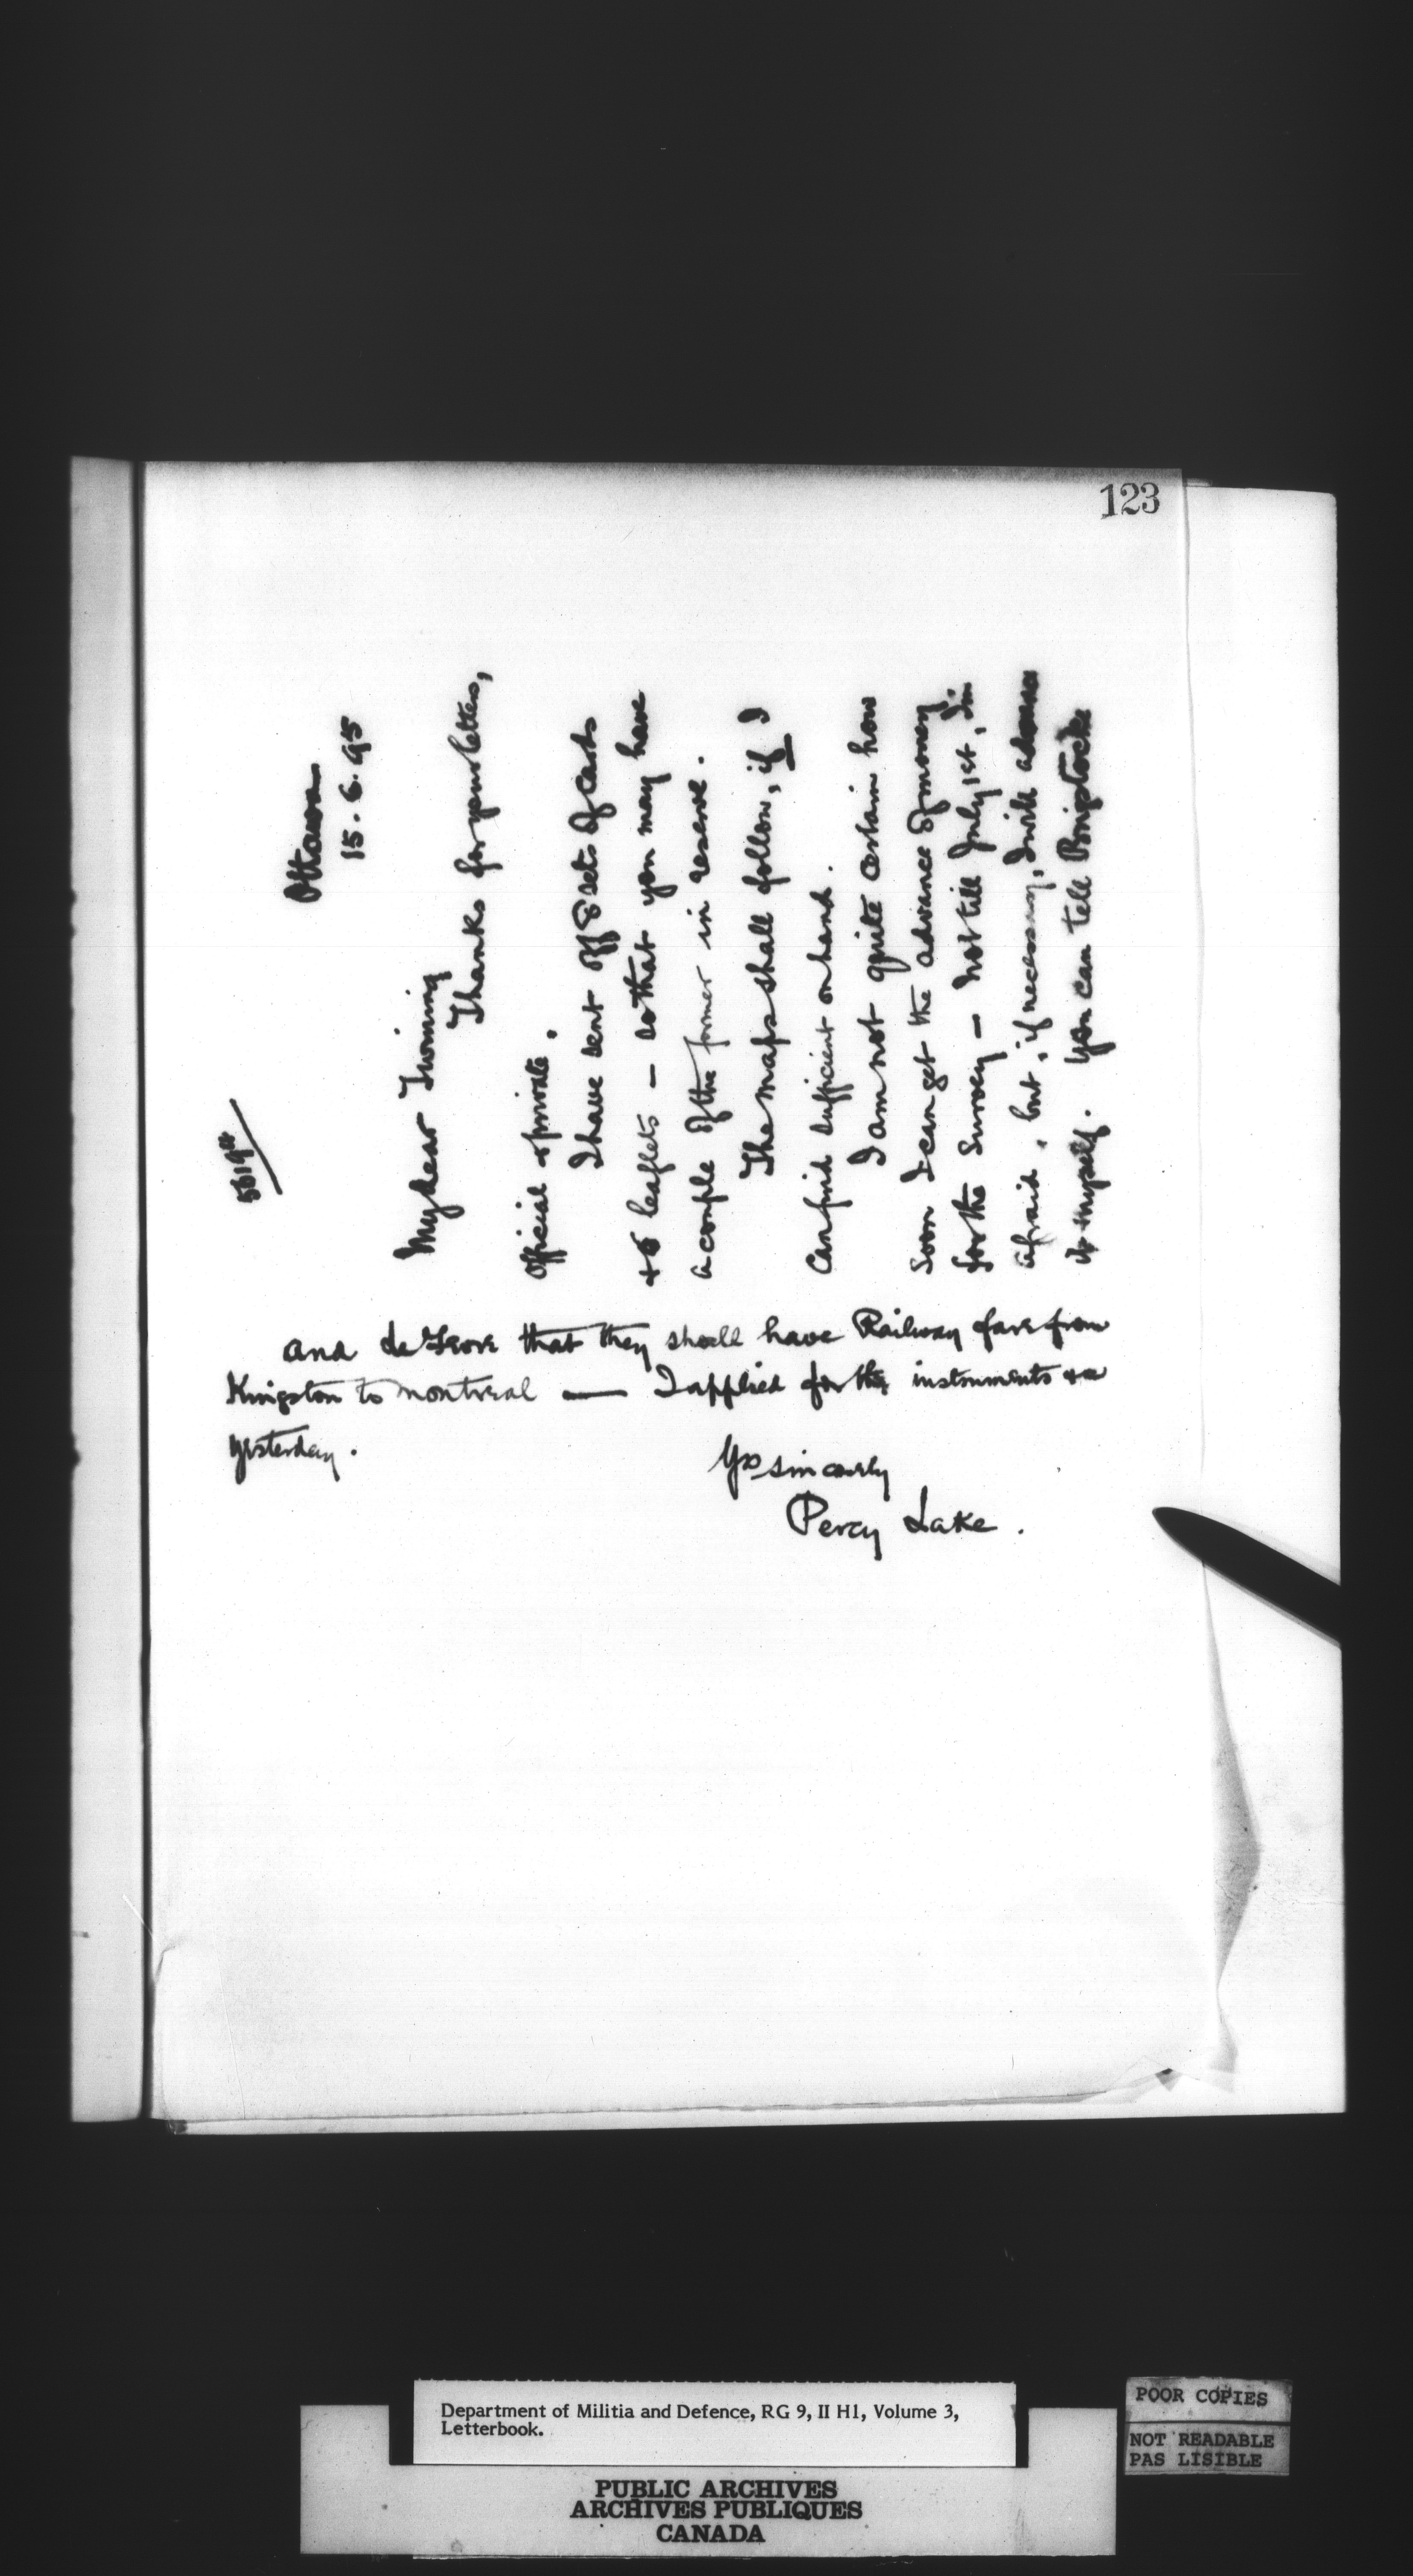 123
5619a
Ottawa
15.6.95
My dear Twining
Thanks for your letters,
official & private.
I have sent off 8 sets of cards
& 6 leaflets — so that you may have
a couple of the former in reserve.
The maps shall follow, if I
can find sufficient on hand.
I am not quite certain how
soon I can get the advance of money
for the Survey — not till July 1st, I'm
afraid, but, if necessary, I will advance
it myself. You can tell Bonijstocke
and that they shall have Railway fare from
Kingston to Montreal — I applied for the instruments &c
yesterday.
Yrs sincerely
Percy Lake.
Department of Militia and Defence, RG 9, II H1, Volume 3,
Letterbook.
POOR COPIES
NOT READABLE
PAS LISIBLE
PUBLIC ARCHIVES
ARCHIVES PUBLIQUES
CANADA